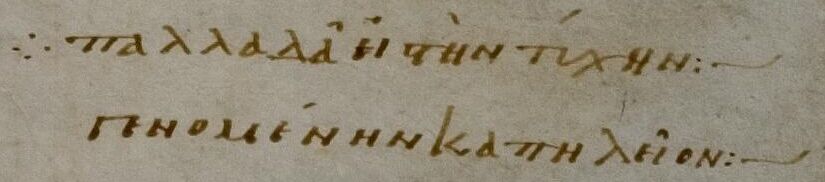 ∴ παλλαδᾶ εἰς τὴν τύχην:~
γενομένην καπηλεῖον:~